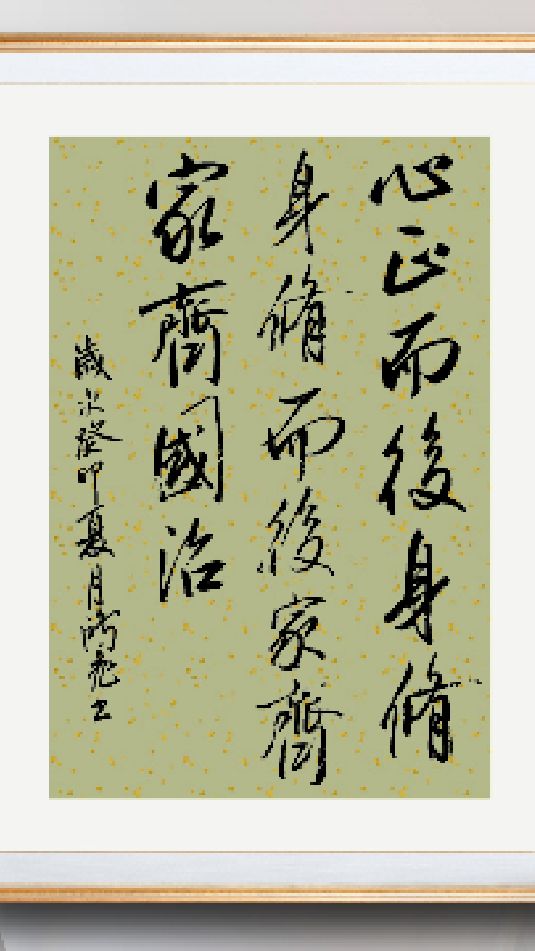 心正而後身脩
身脩而後家齊
家齊國治
歲次癸卯夏月